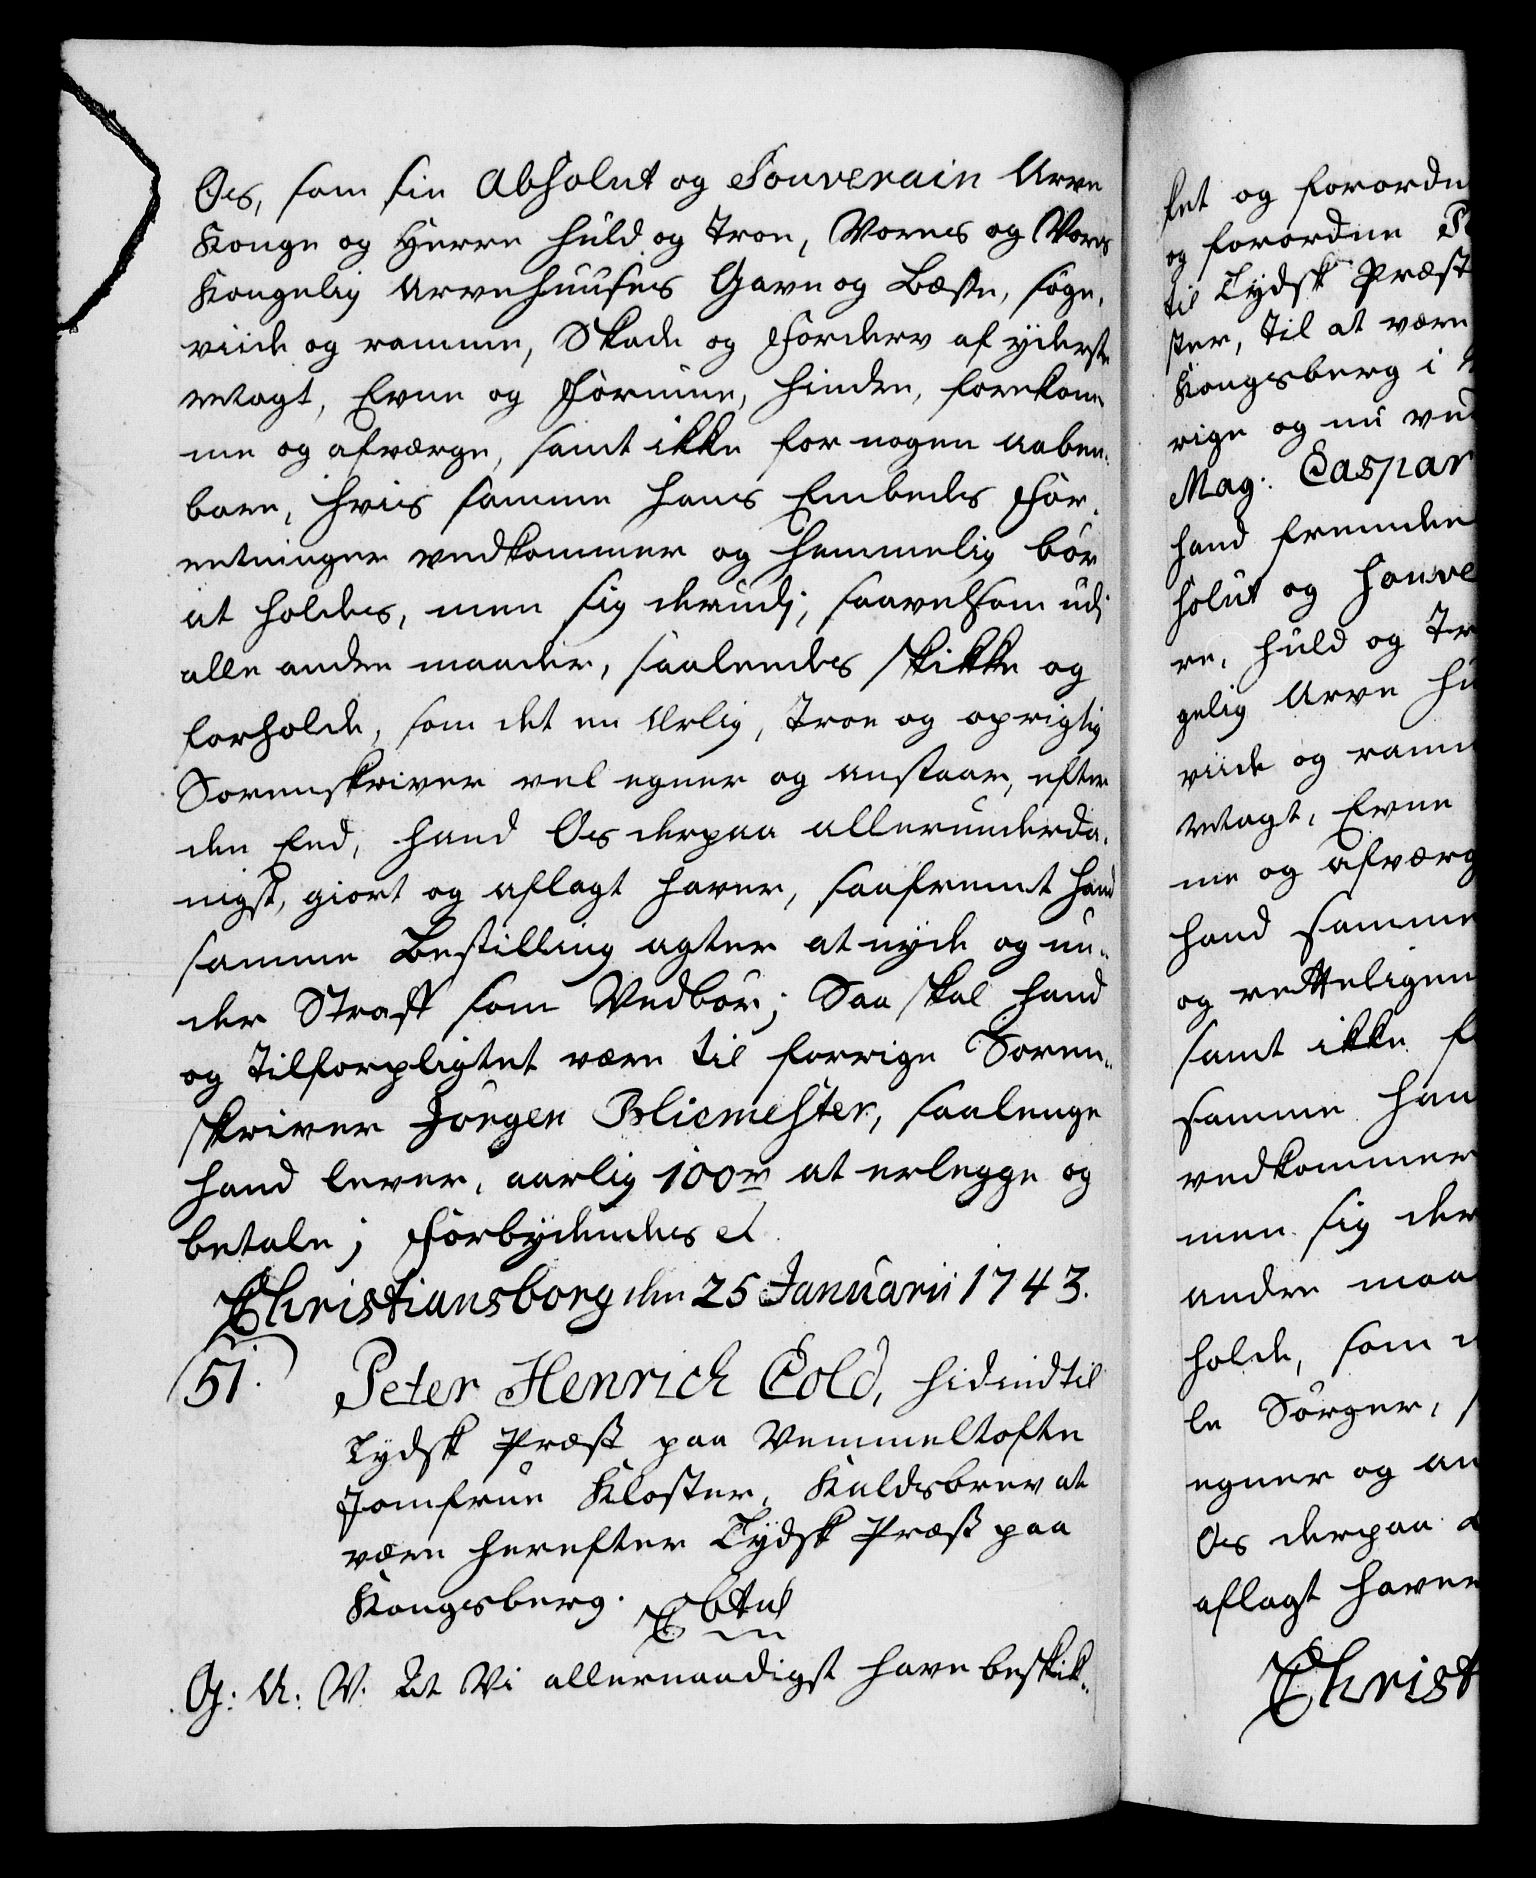 Os, som sin Absolut og Souverain Arve
Konge og Herre huld og troe, Vores og Vores
Kongelig Arvehuuses Gavn og Bæste, søge,
viide og ramme, Skade og Forderv af yderste
Magt, Evne og Formue, hindre, forekom
me og afværge, samt ikke for nogen aaben-
bare, hvis samme hans Embedes For-
retninger vedkommer og hemmelig bør
at holdes, men sig derudj, saavelsom udj
alle andre maader, saaledes skikke og
forholde, som det en ærlig, troe og oprigtig
Sorenskriver vel egner og anstaar, efter
den Eed, hand Os derpaa allerunderda-
nigst, giort og aflagt haver, saafremt hand
samme Bestilling agter at nyde og un-
der Straff som Vedbør; Saa skal hand
og tilforpligtet være til forrige Soren-
skriver Jörgen Bliemester, saalenge
hand lever, aarlig 100 rd at erlegge og
betale; Forbydendes etc
Christiansborg den 25 Januarii 1743.
51. Peter Henrich Cold, hidindtil
Tydsk Præst paa Vemmeltofte
Jomfrue Kloster, Kaldsbrev at
være herefter Tydsk Præst paa
Kongsberg.
G: A: V. At Vi allernaadigst have beskik-
ket og forordn
og forordne P
til Tydsk Præst
ster, til at være
Kongsberg i
rige og nu ved
Mag: Caspar
hand fremde
solut og souve
re, huld og Tr
gelig Arve Hu
viide og ramm
Magt, Evne
me og afværg
hand samme
og retteligen
samt ikke f
samme han
vedkommer
men sig der
andre maa
holde, som
le Sörger,
egner og an
Os derpaa a
aflagt haver
Christ